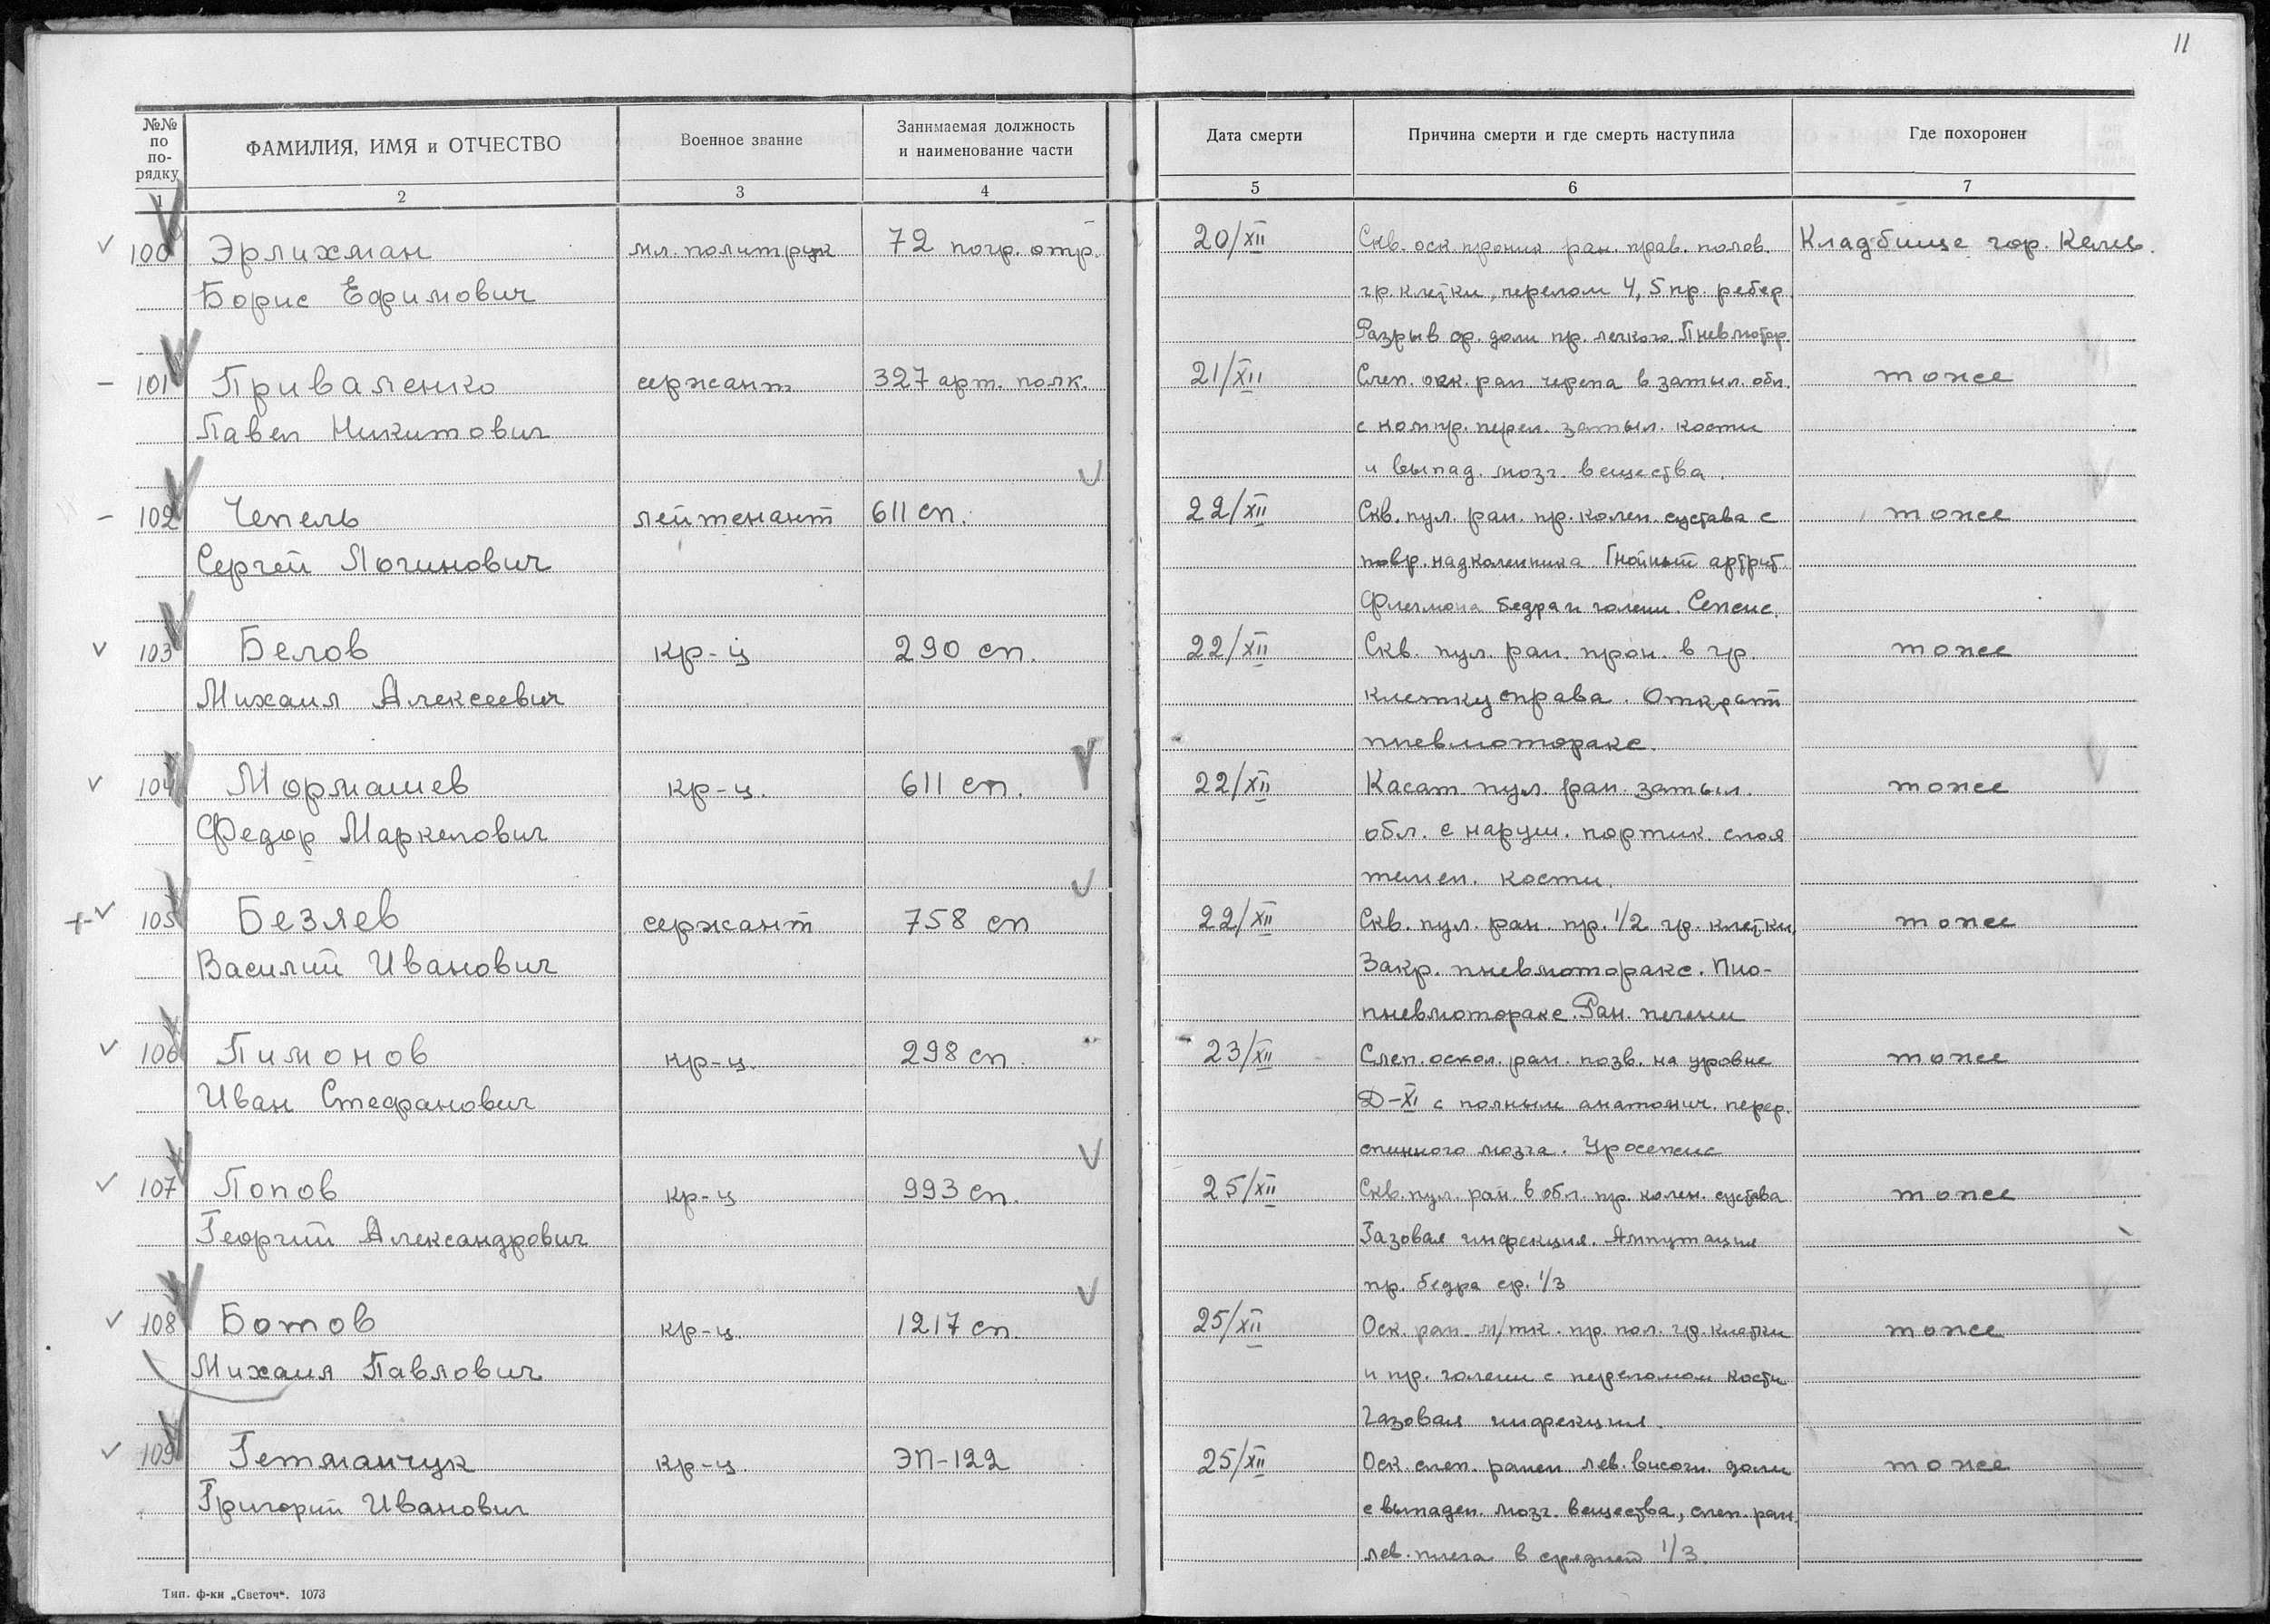 11
№№ по по-рядку
ФАМИЛИЯ, ИМЯ и ОТЧЕСТВО
Военное звание
Занимаемая должность и наименование части
Дата смерти
Причина смерти и где смерть наступила
Где похоронен
1 2 3 4 5 6 7
100 Эрлихман мл. политрук 72 погр. отр. 20/XII Скв. оск. проник. ран. прав. полов. Кладбище гор. Кемь.
Борис Ефимович гр. клетки, перелом 4, 5 пр. ребер.
Разрыв ср. доли пр. легкого. Пневмотор.
101 Приваленко сержант 327 арт. полк. 21/XII Слеп. оск. ран. черепа в затыл. обл. тоже
Павел Никитович с компр. перел. затыл. кости
и выпад. мозг. вещества.
102 Чепель лейтенант 611 сп. 22/XII Скв. пул. ран. пр. колен. сустава с тоже
Сергей Логинович повр. надколенника. Гнойный артрит.
Флегмона бедра и голени. Сепсис.
103 Белов кр-ц 290 сп. 22/XII Скв. пул. ран. прон. в гр. тоже
Михаил Алексеевич клетку справа. Открыт
пневмоторакс.
104 Мормашев кр-ц. 611 сп. 22/XII Касат. пул. ран. затыл. тоже
Федор Маркелович обл. с наруш. кортик. слоя
темен. кости.
105 Безяев сержант 758 сп 22/XII Скв. пул. ран. пр. 1/2 гр. клетки. тоже
Василий Иванович Закр. пневмоторакс. Пио-
пневмоторакс. Ран. печени
106 Пимонов кр-ц. 298 сп. 23/XII Слеп. оскол. ран. позв. на уровне тоже
Иван Стефанович Д-XI с полным анатомич. перер.
спинного мозга. Уросепсис
107 Попов кр-ц 993 сп. 25/XII Скв. пул. ран. в обл. пр. колен. сустава тоже
Георгий Александрович Газовая инфекция. Ампутация
пр. бедра ср. 1/3
108 Ботов кр-ц. 1217 сп. 25/XII Оск. ран. м/тк. пр. пол. гр. клетки тоже
Михаил Павлович и пр. голени с переломом кости
Газовая инфекция.
109 Гетманчук кр-ц. ЭП-122 25/XII Оск. слеп. ранен. лев. височн. доли тоже
Григорий Иванович с выпаден. мозг. вещества, слеп. ран.
лев. плеча в средней 1/3.
Тип. ф-ки „Светоч“. 1073